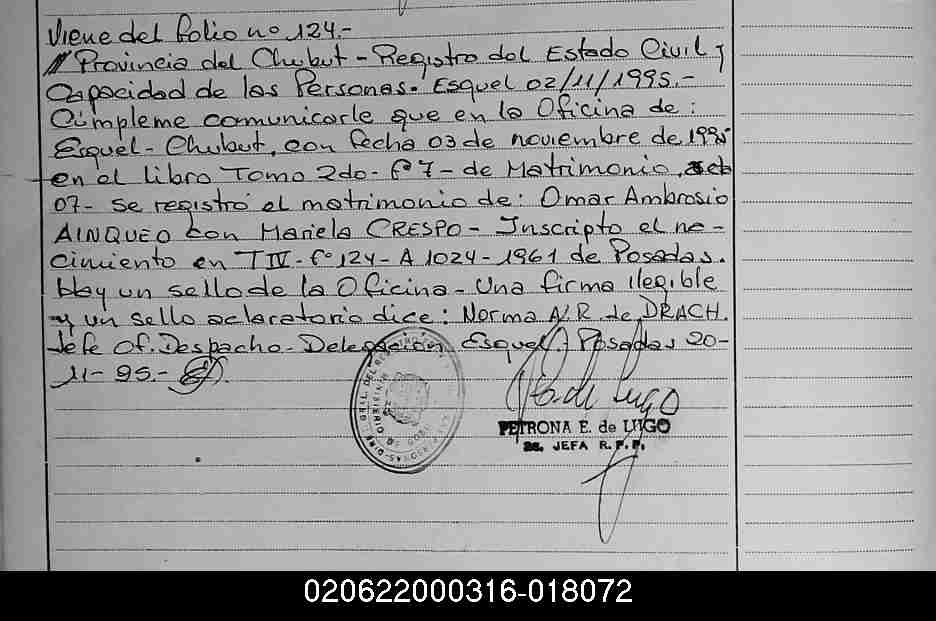 Viene del folio nº 124.-
// Provincia del Chubut - Registro del Estado Civil y
Capacidad de las Personas. Esquel 02/11/1995.-
Cúmpleme comunicarle que en la Oficina de:
Esquel - Chubut, con fecha 03 de noviembre de 1995
en el libro Tomo 2do - fº 7 - de Matrimonio,
07- se registró el matrimonio de: Omar Ambrosio
AINQUEO con Mariela CRESPO - Inscripto el na-
cimiento en T IV - fº 124 - A 1024 - 1961 de Posadas.
Hay un sello de la Oficina - Una firma ilegible
y un sello aclaratorio dice: Norma N.R. de DRACH.
Jefe Of. Despacho - Delegación Esquel. Posadas 20-
11-95.-
P. de Lugo
PETRONA E. de LUGO
2a. JEFA R.P.P.
020622000316-018072